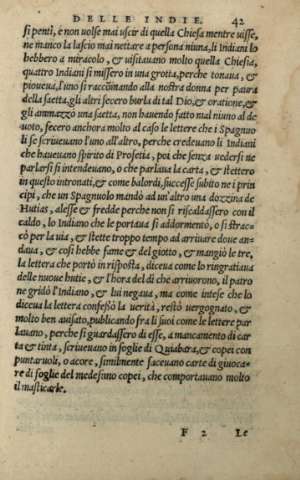 DELLE INDIE. 42
si pentì, e non uolse mai uscir di quella Chiesa mentre uisse,
ne manco la lascio mai nettare a persona niuna, li Indiani lo
hebbero a miracolo, & uisitauano molto quella Chiesia,
quattro Indiani si missero in una grotta, perche tonaua, &
pioueua, l'uno si raccōmando alla nostra donna per paura
della saetta, gli altri fecero burla di tal Dio, & oratione, &
gli ammazzò una saetta, non hauendo fatto mal niuno al de
uoto, fecero anchora molto al caso le lettere che i Spagnuo
li se scriueuano l'uno all'altro, perche credeuano li Indiani
che haueuano spirito di Profetia, poi che senza uedersi ne
parlarsi si intendeuano, o che parlaua la carta, & stettero
in questo intronati, & come balordi, successe subito ne i prin
cipi, che un Spagnuolo mandò ad un'altro una dozzina de
Hutias, alesse & fredde perche non si riscaldassero con il
caldo, lo Indiano che le portaua si addormentò, o si strac=
cò per la uia, & stette troppo tempo ad arriuare doue an=
daua, & così hebbe fame & del giotto, & mangiò le tre,
la lettera che portò in risposta, diceua come lo ringratiaua
delle nuoue hutie, & l'hora del dì che arriuorono, il patro
ne gridò l'Indiano, & lui negaua, ma come intese che lo
diceua la lettera confessò la uerità, restò uergognato, &
molto ben auisato, publicando fra li suoi come le lettere par
lauano, perche si guardassero di esse, a mancamento di car
ta & tinta, scriueuano in foglie di Quiabara, & copei con
puntaruoli, o acore, similmente faceuano carte di giuoca=
re di foglie del medesimo copei, che comportauano molto
il masticarle.
F 2 Le